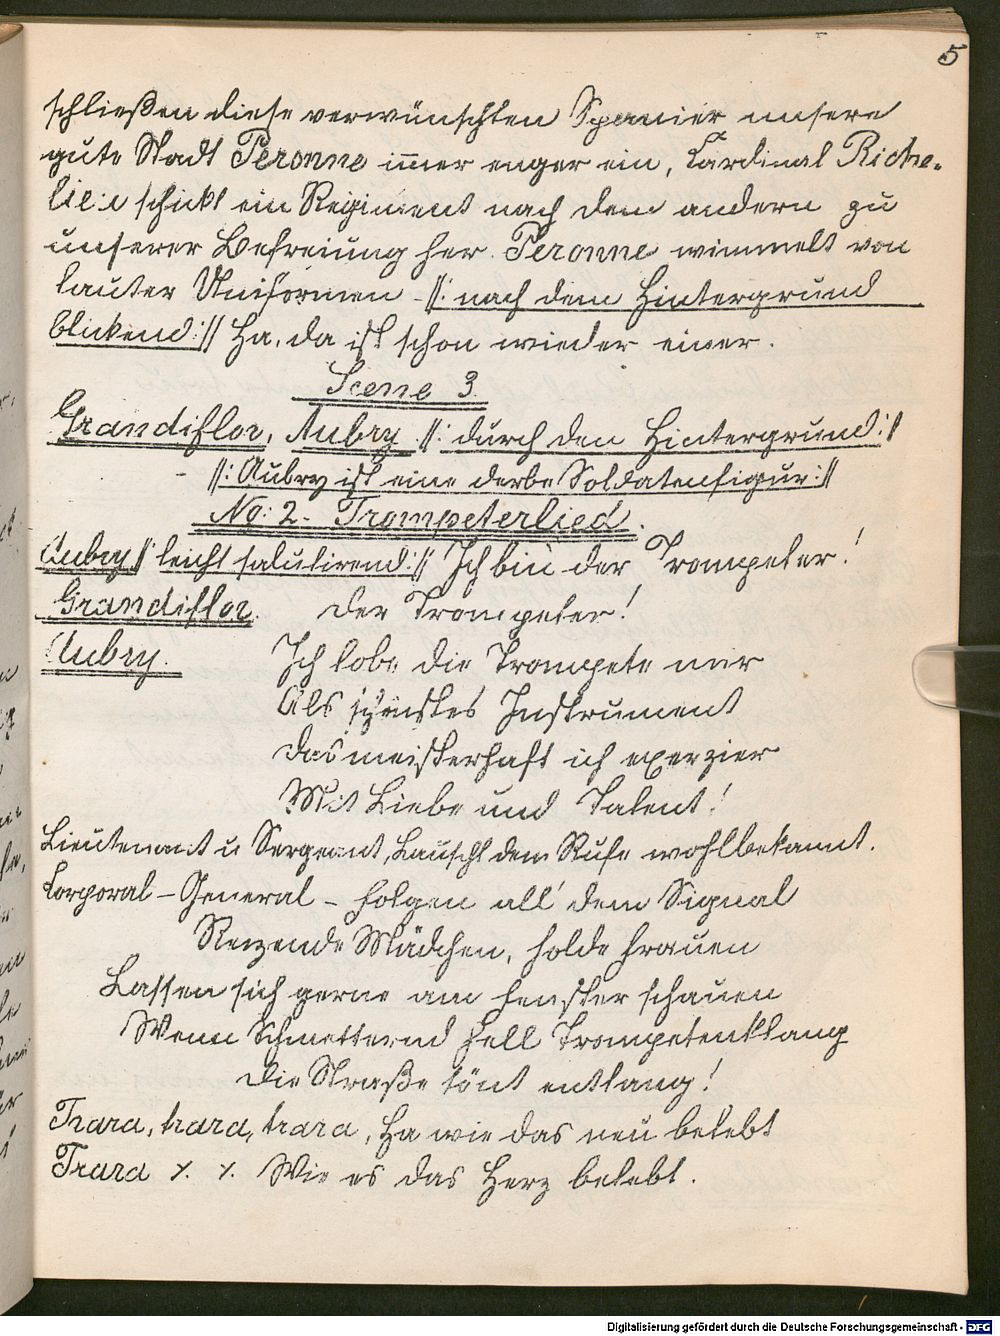 5
schließen diese verwünschten Spanier unsere
gute Stadt Peronne immer enger ein, Cardinal Riche-
lieu schickt ein Regiment nach dem andern zu
unserer Befreiung her. Peronne wimmelt von
lauter Uniformen - //: nach dem Hintergrund
blickend :// Ha, da ist schon wieder einer.
Scene 3.
Grandiflor, Aubry //: durch den Hintergrund ://
//: Aubry ist eine derbe Soldatenfigur ://
No: 2. Trompeterlied.
Aubry // leicht salutirend :// Ich bin der Trompeter!
Grandiflor. Der Trompeter!
Aubry. Ich lobe die Trompete mir
Als schönstes Instrument
Das meisterhaft ich exerzier
Mit Liebe und Talent!
Lieutenant u Sergeant, Lauscht dem Rufe wohlbekannt.
Corporal - General - folgen all' dem Signal
Reizende Mädchen, holde Frauen
Lassen sich gerne am Fenster schauen
Wenn Schmetternd hell Trompetenklang
Die Straße tönt entlang!
Trara, trara, trara, Ha wie das neu belebt
Trara ٪ ٪ Wie es das Herz belebt.
Digitalisierung gefördert durch die Deutsche Forschungsgemeinschaft - DFG